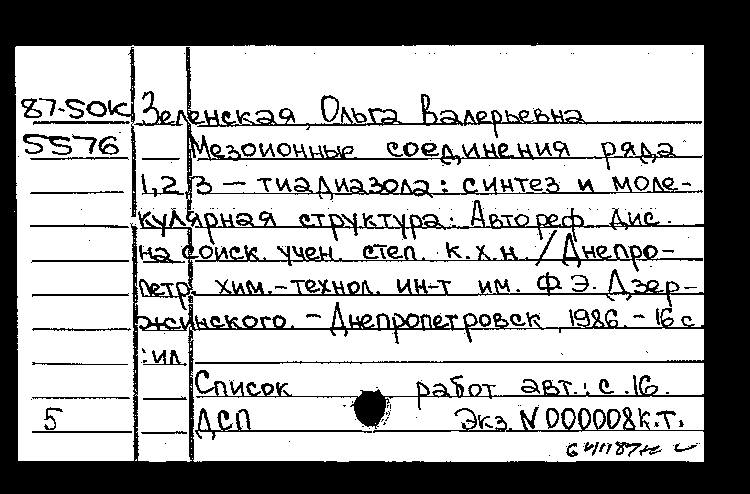 87-50К Зеленская, Ольга Валерьевна
5576 Мезоионные соединения ряда
1,2,3 — тиадиазола: синтез и моле-
кулярная структура: Автореф. дис.
на соиск. учен. степ. к.х.н. / Днепро-
петр. хим.-технол. ин-т им. Ф.Э. Дзер-
жинского. - Днепропетровск, 1986. - 16 с.
: ил.
Список работ авт.: с. 16.
5 ДСП Экз. N 000008К.Т.